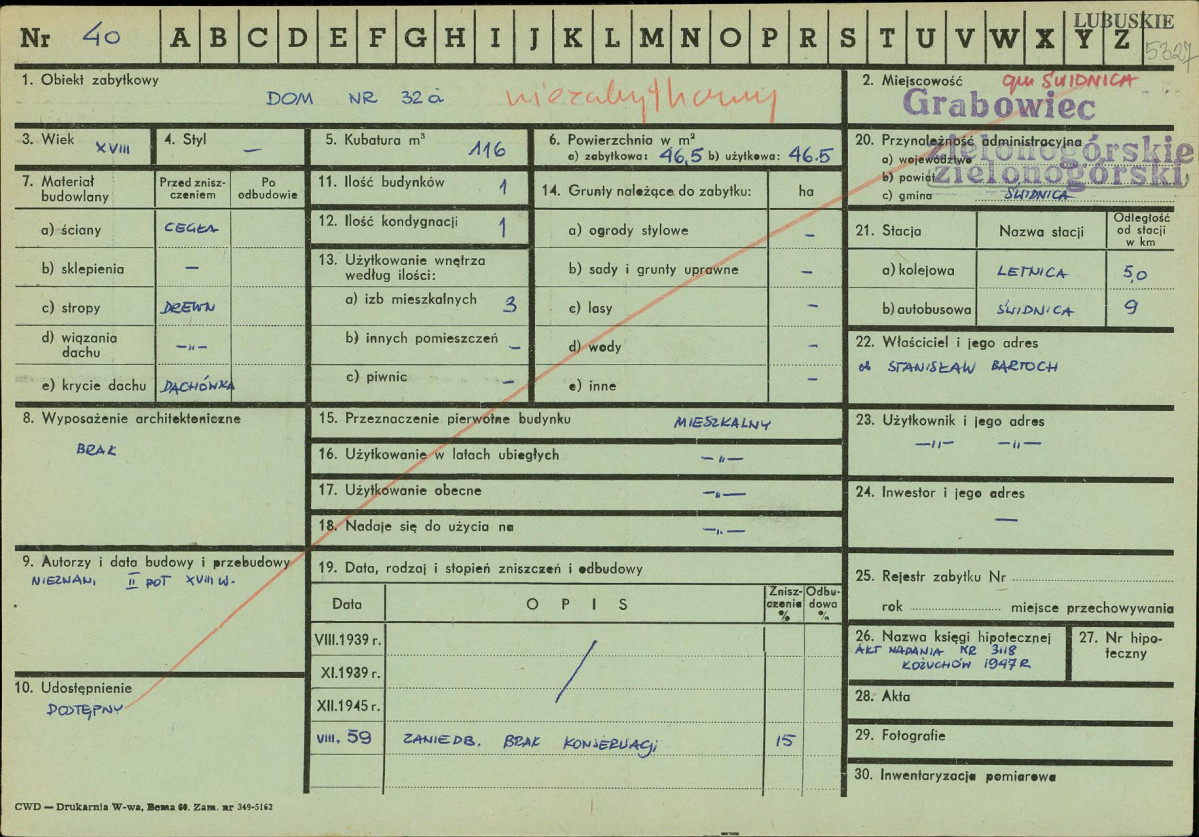 LUBUSKIE
Nr 40 A B C D E F G H I J K L M N O P R S T U V W X Y Z
5327
1. Obiekt zabytkowy
DOM NR 32a niezabytkowy
2. Miejscowość gm ŚWIDNICA
Grabowiec
3. Wiek XVIII
4. Styl —
5. Kubatura m³ 116
6. Powierzchnia w m²
a) zabytkowa: 46,5 b) użytkowa: 46.5
20. Przynależność administracyjna
a) województwo zielonogórskie
b) powiat zielonogórski
c) gmina ŚWIDNICA
7. Materiał budowlany
Przed zniszczeniem
Po odbudowie
a) ściany CEGŁA
b) sklepienia —
c) stropy DREWN
d) wiązania dachu —„—
e) krycie dachu DACHÓWKA
11. Ilość budynków 1
12. Ilość kondygnacji 1
13. Użytkowanie wnętrza
według ilości:
a) izb mieszkalnych 3
b) innych pomieszczeń —
c) piwnic —
14. Grunty należące do zabytku: ha
a) ogrody stylowe —
b) sady i grunty uprawne —
c) lasy —
d) wody —
e) inne —
21. Stacja Nazwa stacji Odległość od stacji w km
a) kolejowa LETNICA 5,0
b) autobusowa ŚWIDNICA 9
22. Właściciel i jego adres
STANISŁAW BARTOCH
8. Wyposażenie architektoniczne
BRAK
15. Przeznaczenie pierwotne budynku MIESZKALNY
16. Użytkowanie w latach ubiegłych —„—
17. Użytkowanie obecne —„—
18. Nadaje się do użycia na —„—
23. Użytkownik i jego adres
—„— —„—
24. Inwestor i jego adres
—
9. Autorzy i data budowy i przebudowy
NIEZNANI II POŁ XVIII W.
10. Udostępnienie
DOSTĘPNY
19. Data, rodzaj i stopień zniszczeń i odbudowy
Data OPIS Zniszczenie % Odbudowa %
VIII.1939 r.
XI.1939 r.
XII.1945 r.
VIII. 59 ZANIEDB. BRAK KONSERWACJI 15
25. Rejestr zabytku Nr
rok miejsce przechowywania
26. Nazwa księgi hipotecznej
AKT NADANIA NR 3118
KOŻUCHÓW 1947 R
27. Nr hipoteczny
28. Akta
29. Fotografie
30. Inwentaryzacja pomiarowa
CWD — Drukarnia W-wa, Bema 60. Zam. nr 349-5162